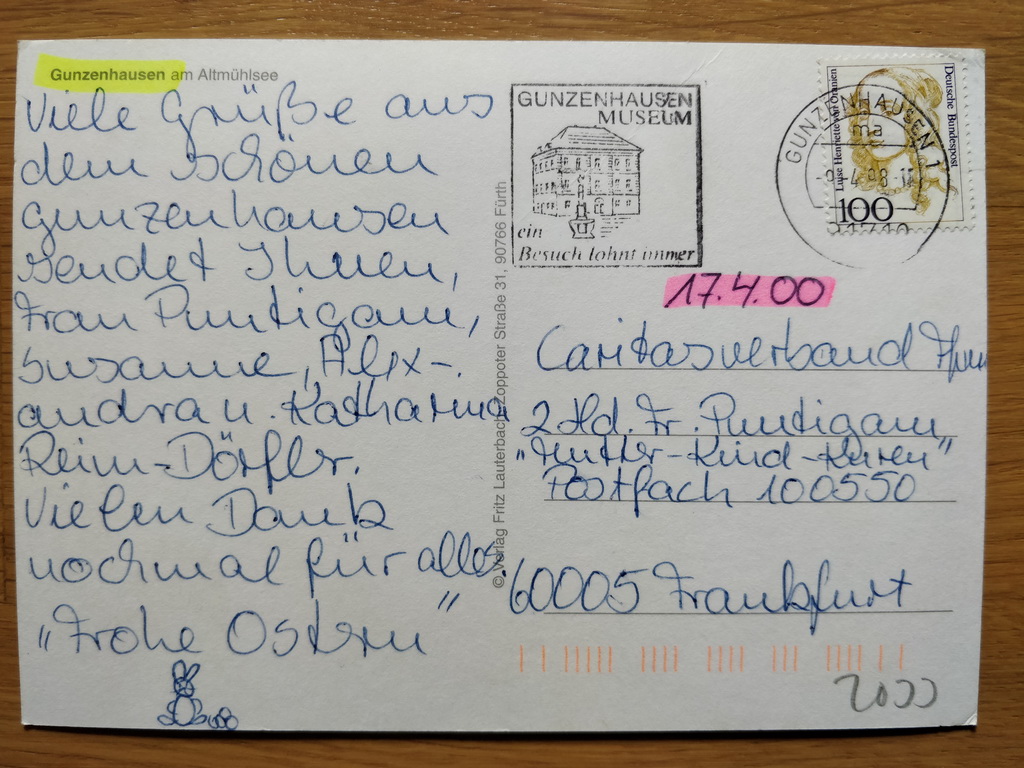 Gunzenhausen am Altmühlsee
Viele Grüße aus
dem schönen
gunzenhausen
sendet Ihnen,
Frau Puntigam,
Susanne, Alex-
andra u. Katharina
Reim-Dörfler.
Vielen Dank
nochmal für alles.
"Frohe Ostern"
© Verlag Fritz Lauterbach, Zoppoter Straße 31, 90766 Fürth
GUNZENHAUSEN
MUSEUM
ein
Besuch lohnt immer
GUNZENHAUSEN 1
ma
91710
Luise Henriette von Oranien
Deutsche Bundespost
100
17.4.00
Caritasverband
2 Hd. Fr. Puntigam
"Mutter-Kind-Kuren"
Postfach 100550
60005 Frankfurt